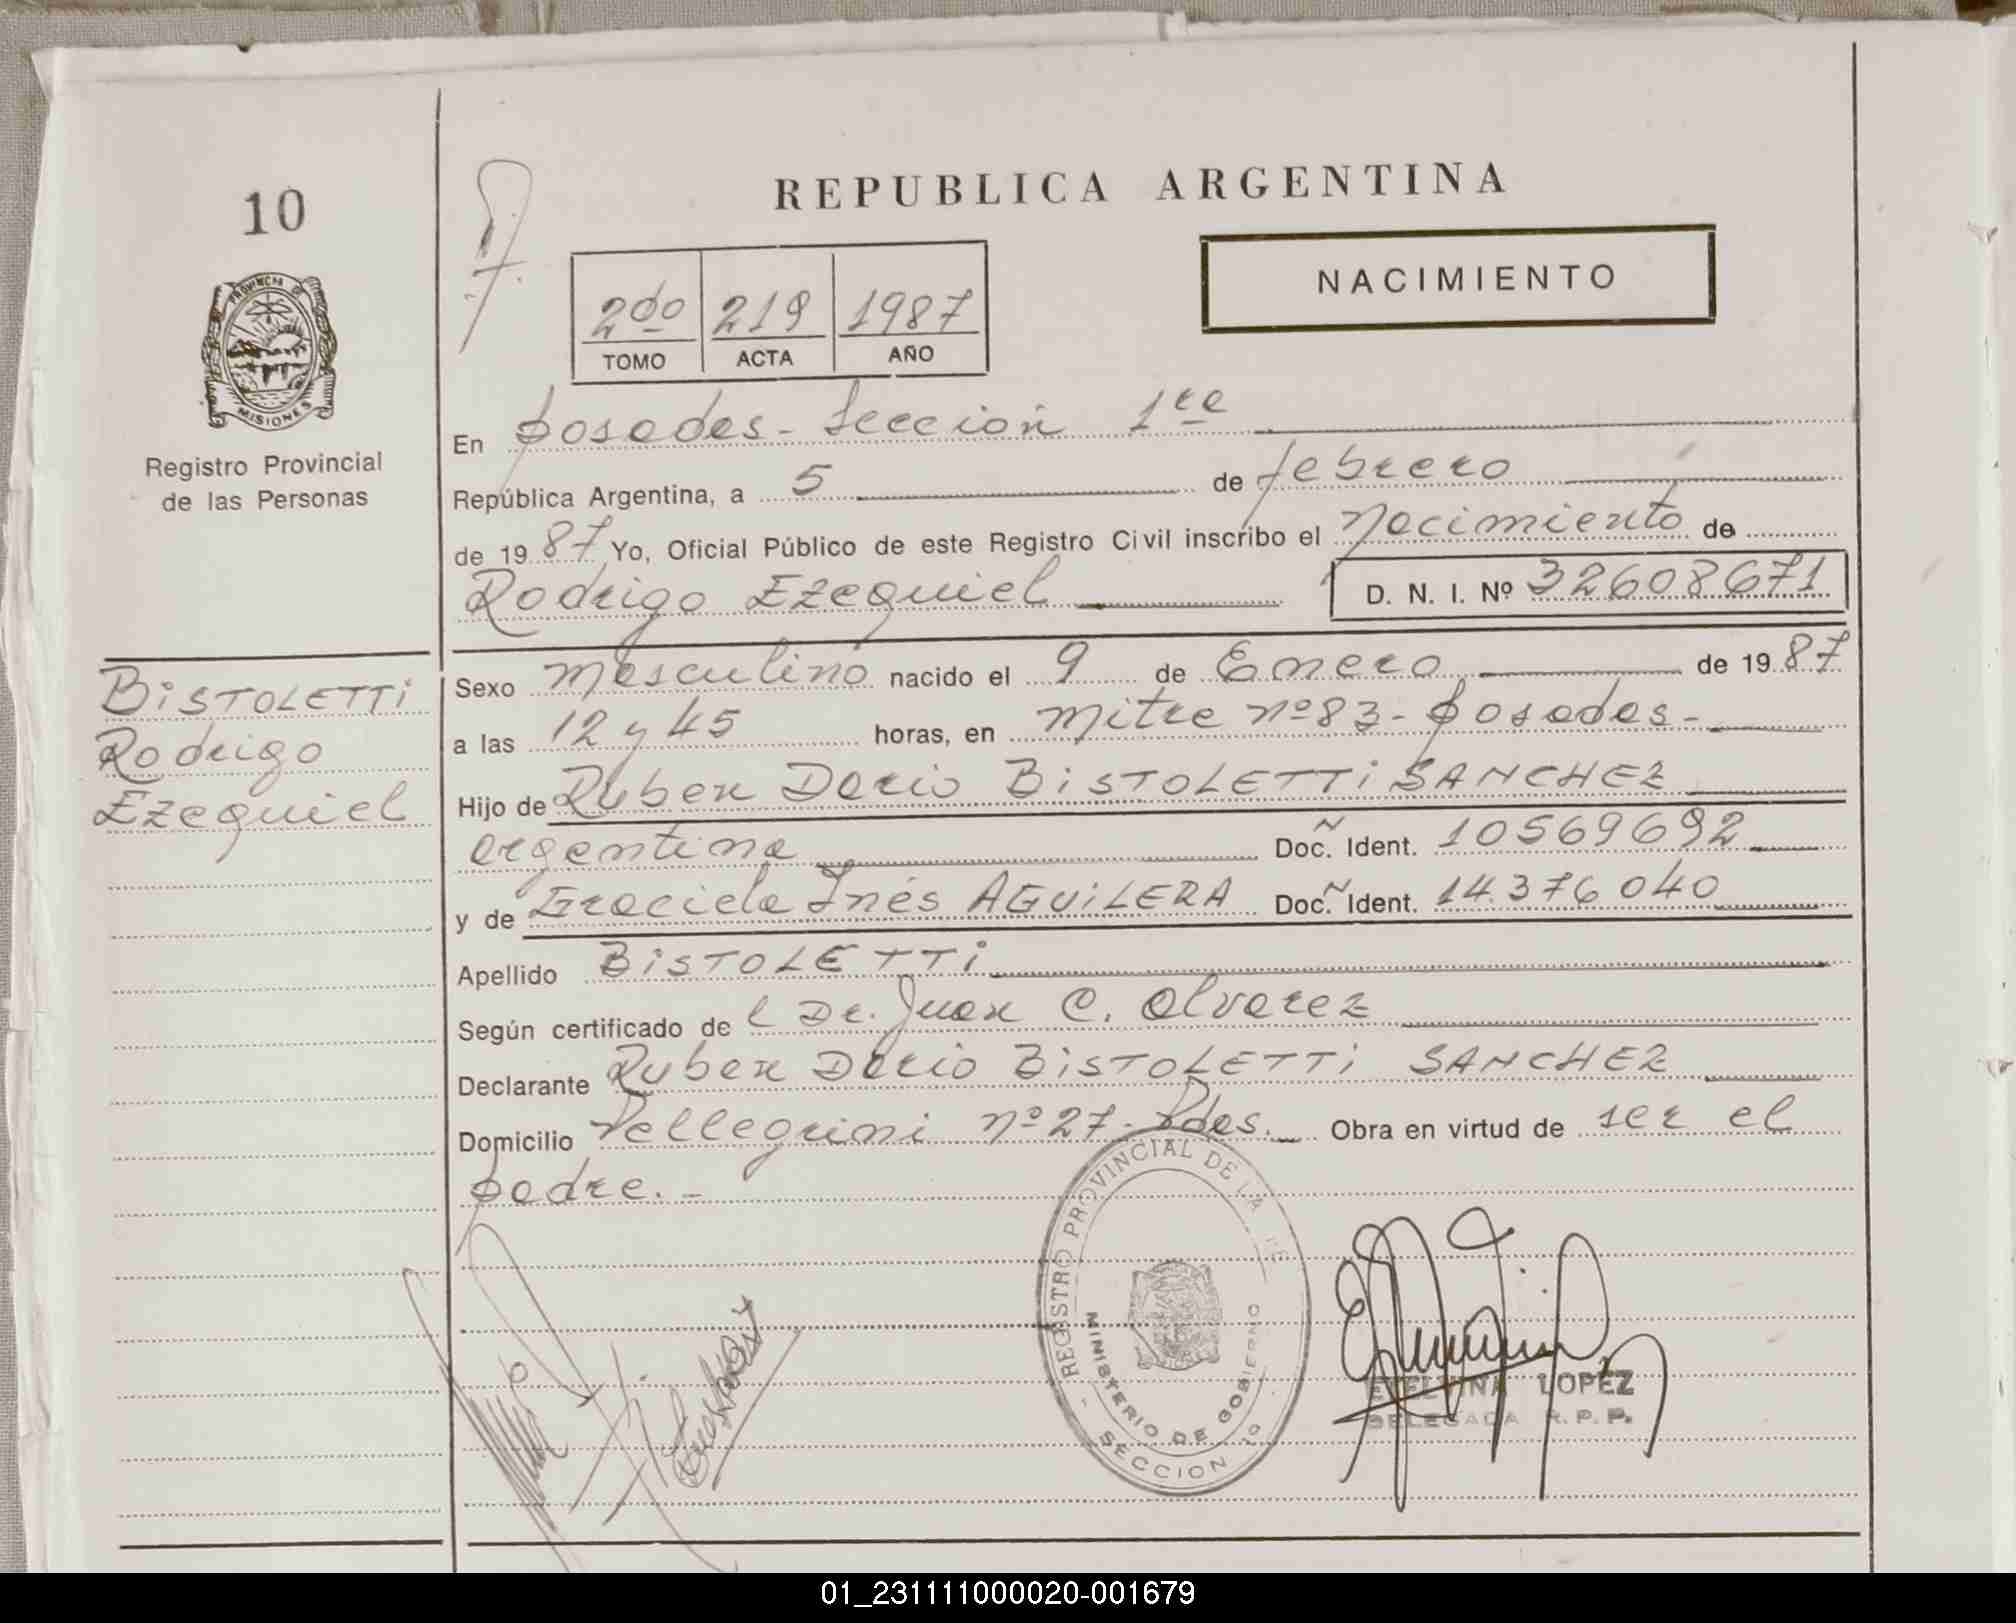 10
PROVINCIA DE
MISIONES
Registro Provincial
de las Personas
BISTOLETTI
Rodrigo
Ezequiel
REPUBLICA ARGENTINA
NACIMIENTO
2do 219 1987
TOMO ACTA AÑO
En posadas - Sección 1ra
República Argentina, a 5 de febrero
de 1987 Yo, Oficial Público de este Registro Civil inscribo el nacimiento de
Rodrigo Ezequiel D. N. I. Nº 32608671
Sexo masculino nacido el 9 de Enero de 1987
a las 12 y 45 horas, en mitre nº 83 - posadas -
Hijo de Ruben Dario BISTOLETTI SANCHEZ
argentina Doc. Ident. 10569692
y de Graciela Inés AGUILERA Doc. Ident. 14.376040
Apellido BISTOLETTI
Según certificado de l Dr. Juan C. Alvarez
Declarante Ruben Dario BISTOLETTI SANCHEZ
Domicilio Pellegrini nº 27 - Pdas. Obra en virtud de ser el
padre. -
REGISTRO PROVINCIAL DE LA
MINISTERIO DE GOBIERNO
SECCION 1a
LOPEZ
DELEGADA R. P. P.
01_231111000020-001679